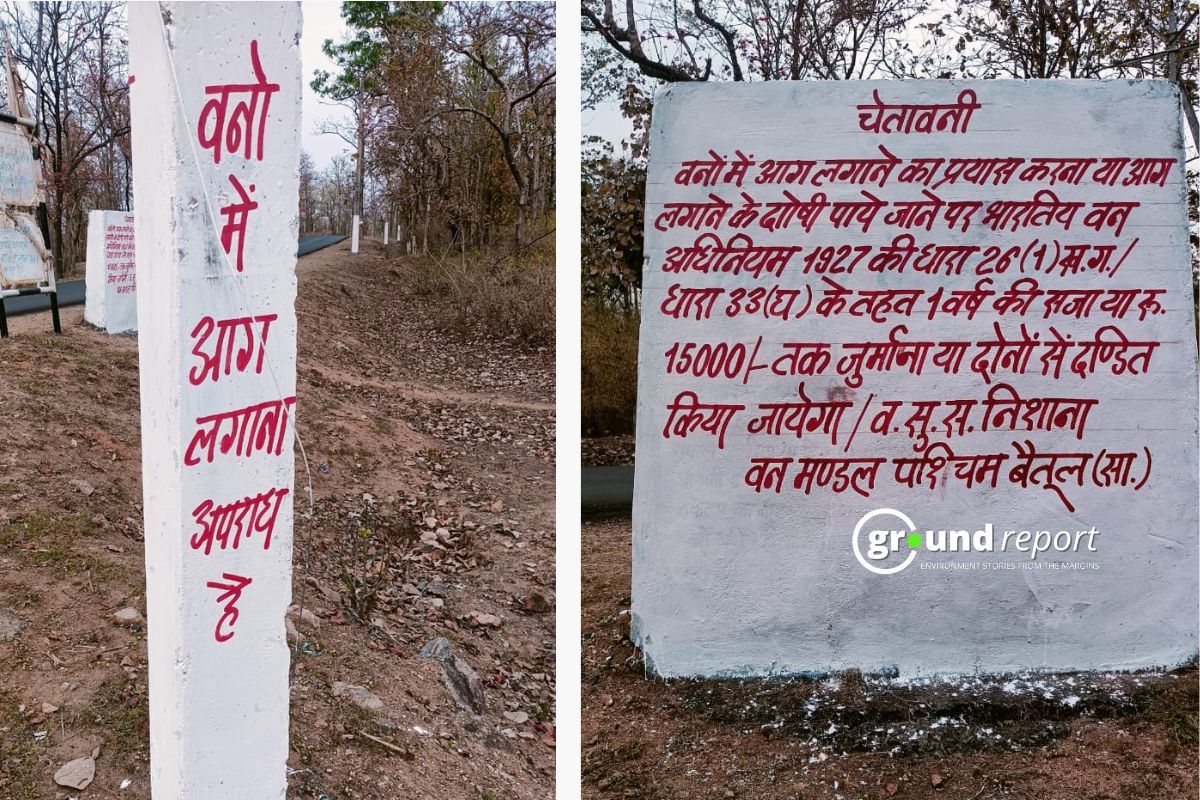 वनो
में
आग
लगाना
अपराध
है
चेतावनी
वनों में आग लगाने का प्रयास करना या आग
लगाने के दोषी पाये जाने पर भारतिय वन
अधिनियम 1927 की धारा 26(1) ख.ग./
धारा 33(घ) के तहत 1 वर्ष की सजा या रू.
15000/- तक जुर्माना या दोनों सें दण्डित
किया जायेगा / व. सु. स. निशाना
वन मण्डल पश्चिम बैतूल (सा.)
ground report
ENVIRONMENT STORIES FROM THE MARGINS